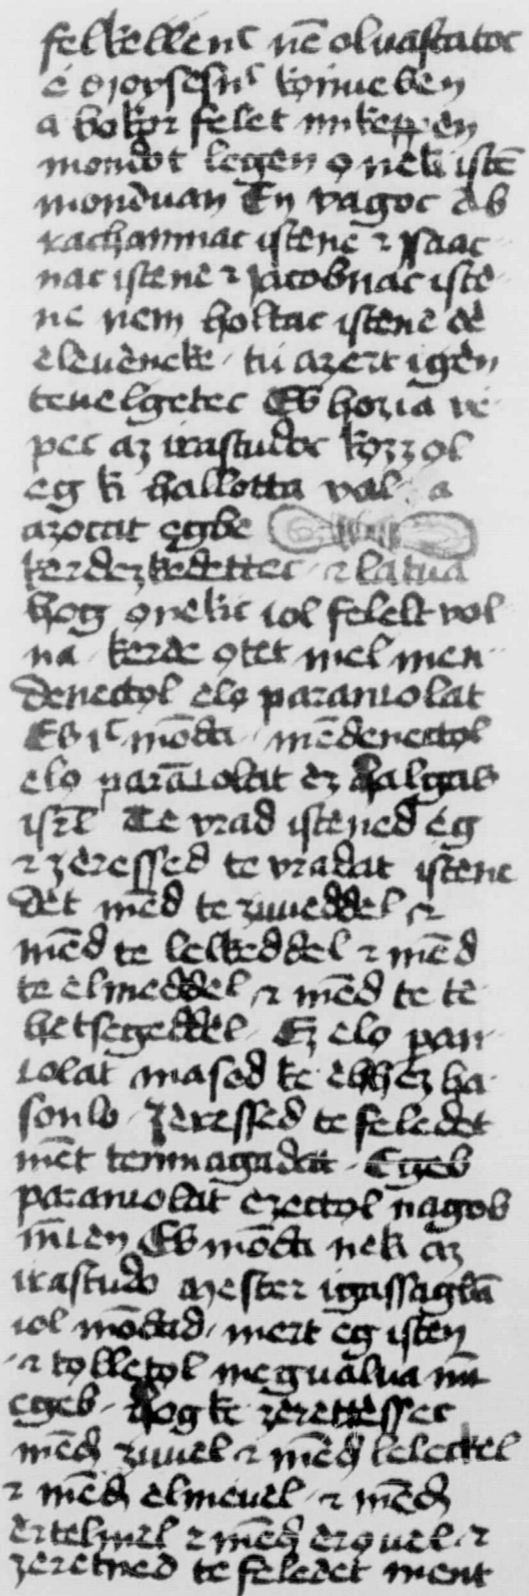 felkellenc nē oluastatoc
è Moysesnc kɵnueben
a bokor felet mikeppen
mondot legen o nèki istē
monduan En vagoc Ab
rachamnac istenè ⁊ ysaac
nac istenè ⁊ Jacobnac iste
ne nem holtac istenè dè
elèuèneke tú azert igèn
teuelgètec Es hozia ve
pec az irastudoc kozzɵl
eg ki hallotta vala
azocat ègbè
kerdezkedettèc ⁊ latua
hog ɵnekic iol felelt vol
na kerde ɵtèt mel men
denèctɵl elɵ parančolat
Es ic mōda mēdenectɵl
elɵ parāčolat ez halgas
isrl Te vrad istèned èg
⁊ zèressed te vradat istene
dèt mēd te zuueddel ⁊
mēd te lelkeddèl ⁊ mēd
te elmeddèl ⁊ mēd te tè
hetsegeddèl Ez elɵ pan
čolat masod kè ehhez ha
sonlo zèressed te feledèt
mēt tènmagadat Egèb
parančolat ezectɵl nagob
ninčen Es mōda neki az
irastudo Mester igassagbā
iol mōdad mert eg istèn
⁊ tɵlletɵl meguālua ninc
egèb hog kè zerettessec
mēd zuuèl ⁊ mēd lelèckel
⁊ mēd elmeuèl ⁊ mēd
ertelmèl ⁊ mēd erɵuèl ⁊
zeretned te feledèt mènt